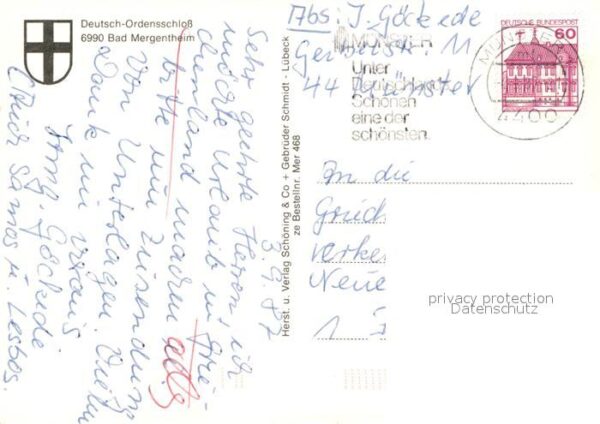 Deutsch-Ordensschloß
6990 Bad Mergentheim
3.9.87
Sehr geehrte Herren, ich
möchte Urlaub in Grie-
chenland machen
bitte um Zusendung
von Unterlagen. Vielen
Dank im Voraus
Ing. Göckede
(Auch Samos u. Lesbos.
allg
Herst. u. Verlag Schöning & Co + Gebrüder Schmidt · Lübeck
ze Bestellnr. Mer 468
Abs: I. Göckede
11
44 Münster
MÜNSTER
Unter
Deutschlands
Schönen
eine der
schönsten.
DEUTSCHE BUNDESPOST
60
MÜNSTER
4400
An die
Griech
verke
Neue
1
privacy protection
Datenschutz